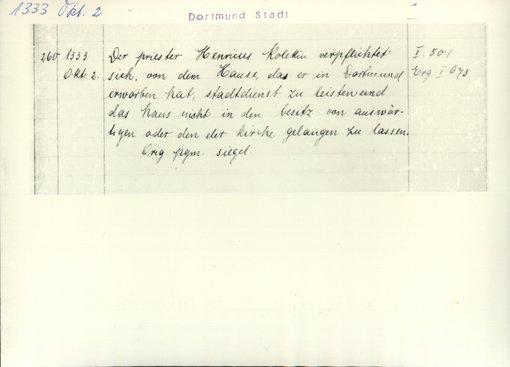 1333 Okt. 2
Dortmund Stadt
260 1333 Der priester Henricus Kolekin verpflichtet I. 501
Okt. 2. sich, von dem Hause, das er in Dortmund Erg I 673
erworben hat, stadtdienst zu leisten und
das haus nicht in den besitz von auswär-
tigen oder den der kirche gelangen zu lassen.
Orig pgm. siegel